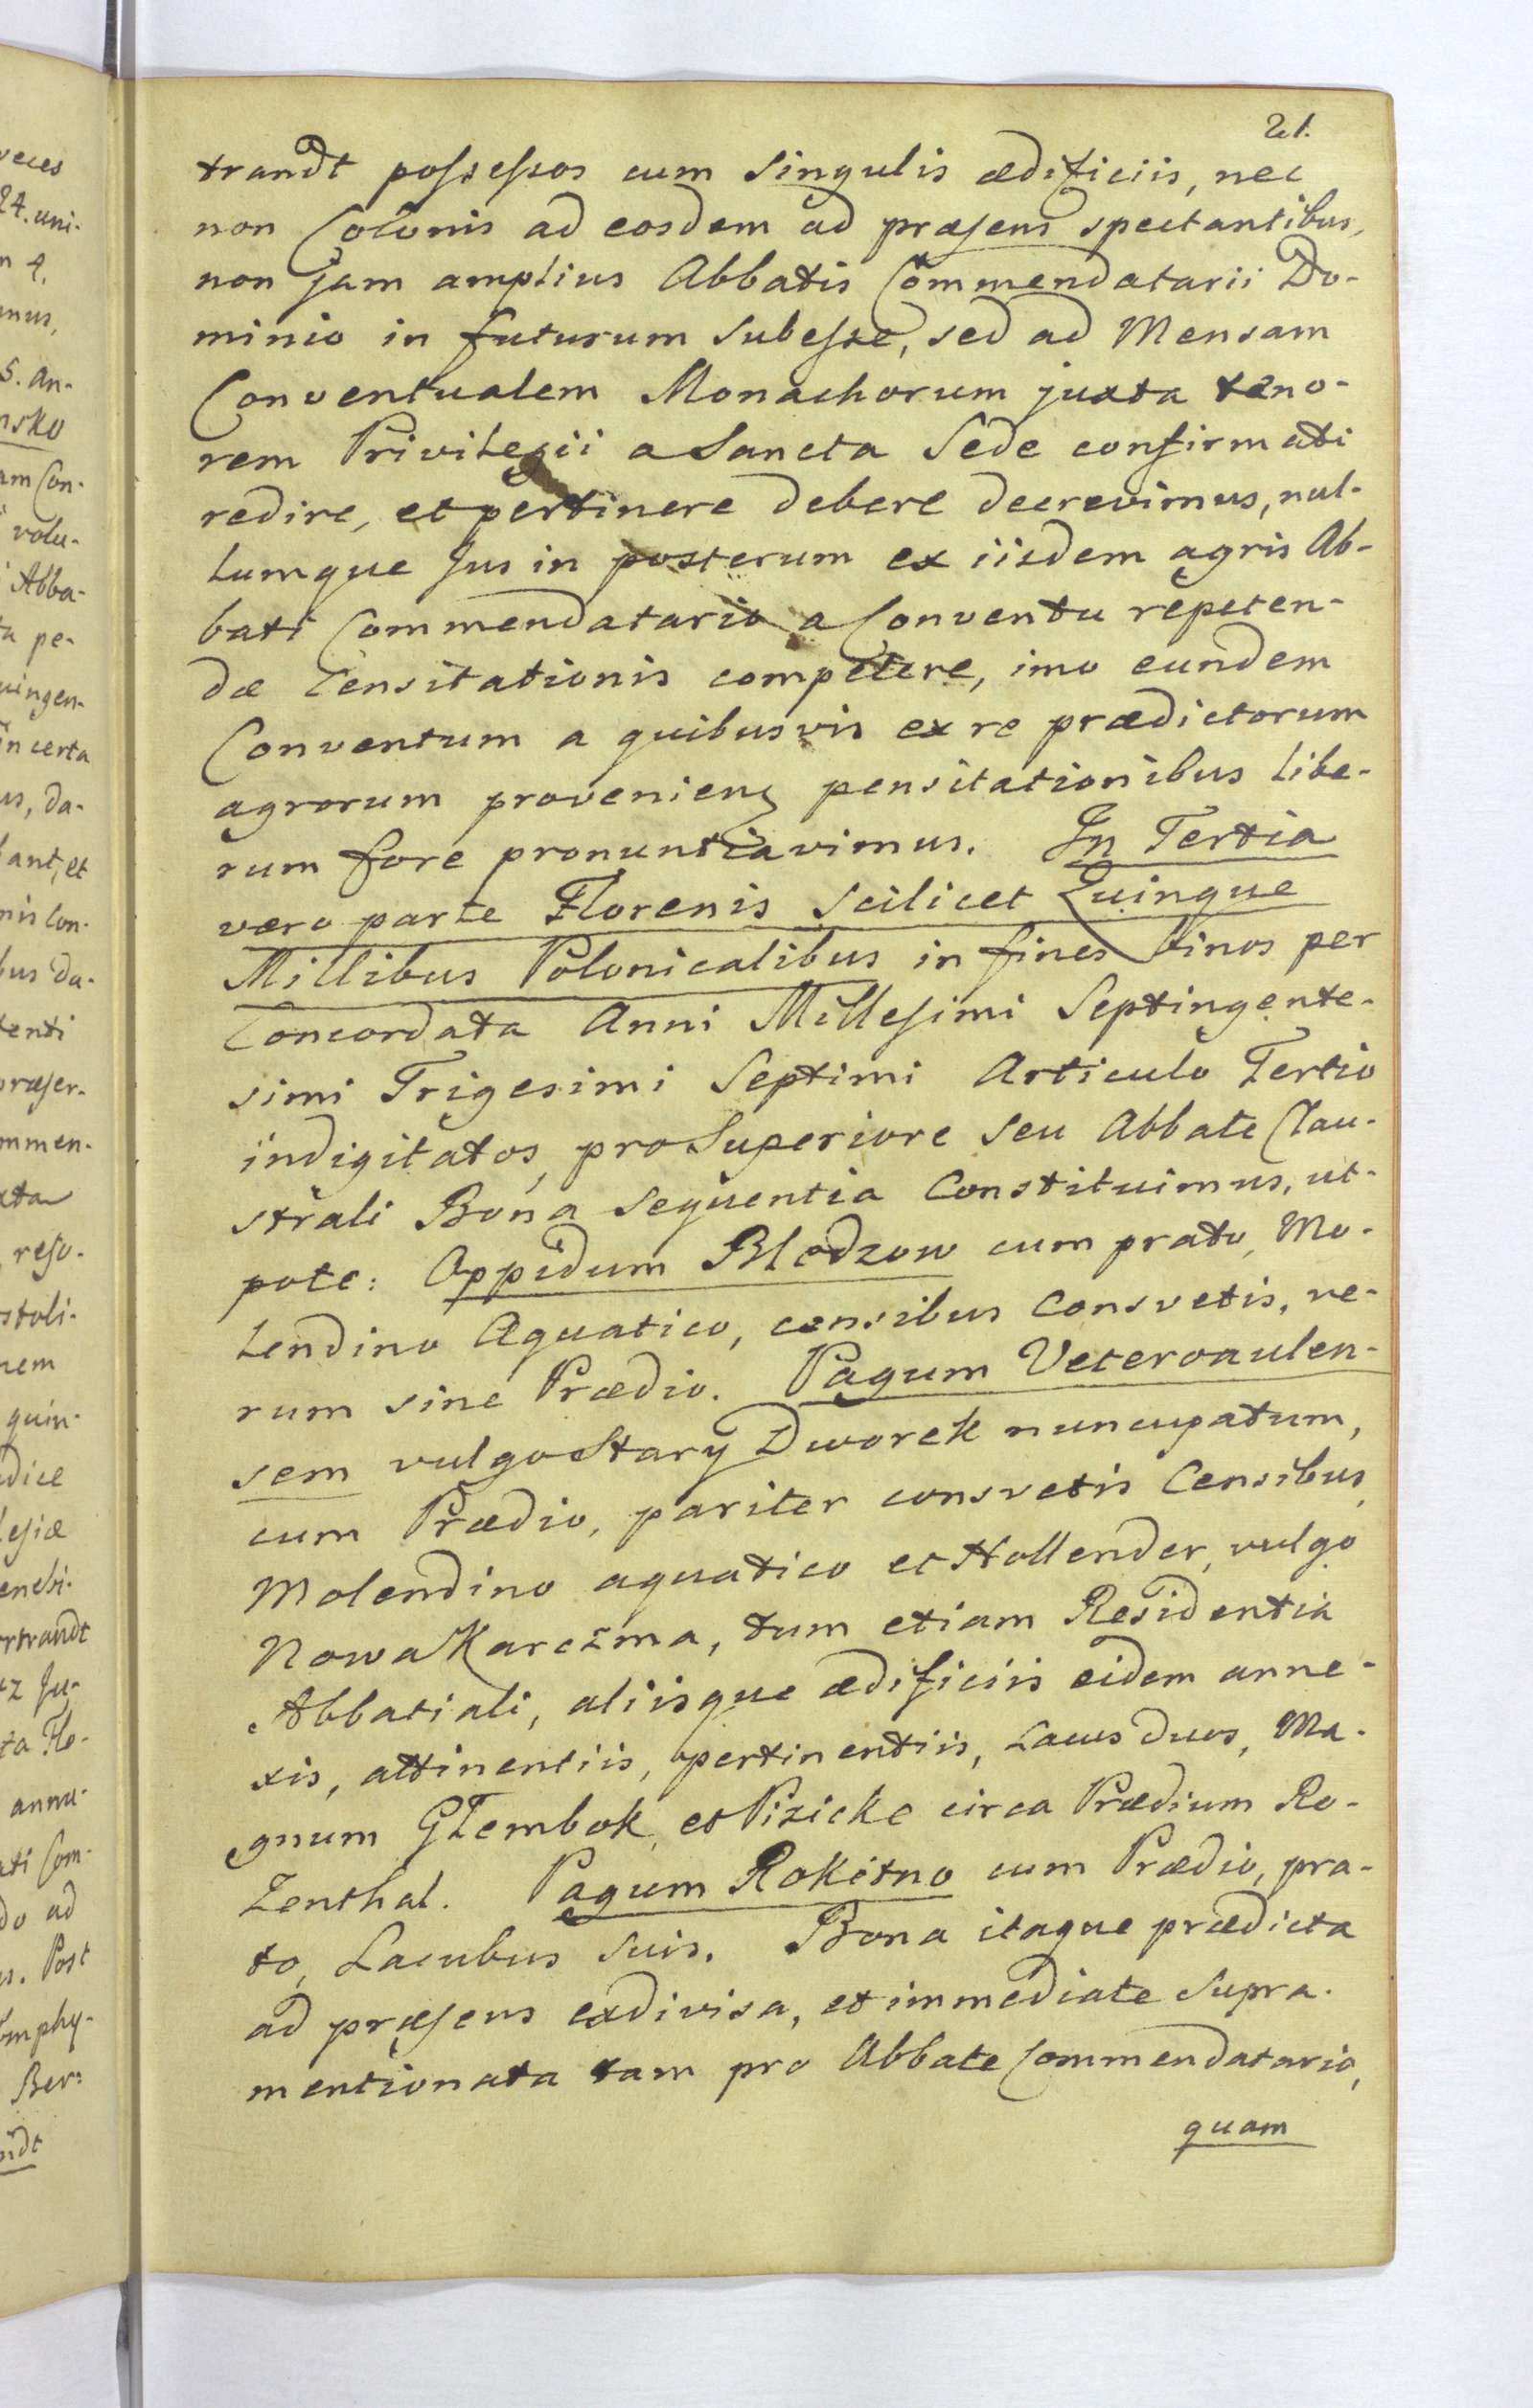 21.
trandt possessos cum singulis ædificiis, nec
non Colonis ad eosdem ad præsens spectantibus,
non jam amplius Abbatis Commendatarii Do-
minio in futurum subesse, sed ad Mensam
Conventualem Monachorum juxta teno-
rem Privilegii a Sancta Sede confirmati
redire, et pertinere debere decrevimus, nul-
lumque Jus in posterum ex iisdem agris Ab-
bati Commendatario a Conventu repeten-
dæ Censitationis competere, imo eundem
Conventum a quibusvis ex re prædictorum
agrorum provenieng pensitationibus libe-
rum fore pronuntiavimus. In Tertia
vero parte Florenis scilicet Quinque
Millibus Polonicalibus in fines binos per
Concordata Anni Millesimi Septingente-
simi Trigesimi Septimi Articulo Tertio
indigitatos, pro Superiore seu Abbate Clau-
strali Bona sequentia Constituimus, ut-
pote: Oppidum Bledzow cum prato, Mo-
lendino Aquatico, censibus Consvetis, ve-
rum sine Prædio. Pagum Veteroaulen-
sem vulgo Stary Dworek nuncupatum,
cum Prædio, pariter consvetis Censibus,
Molendino aquatico et Hollender, vulgo
Nowa Karczma, tum etiam Residentia
Abbatiali, aliisque ædificiis eidem anne-
xis, attinentiis, pertinentiis, Lacus duos, Ma-
gnum Glembok, et Pizicke circa Prædium Ro-
zenthal. Pagum Rokitno cum Prædio, pra-
to, Lacubus suis. Bona itaque prædicta
ad præsens exdivisa, et immediate supra-
mentionata tam pro Abbate Commendatario,
quam